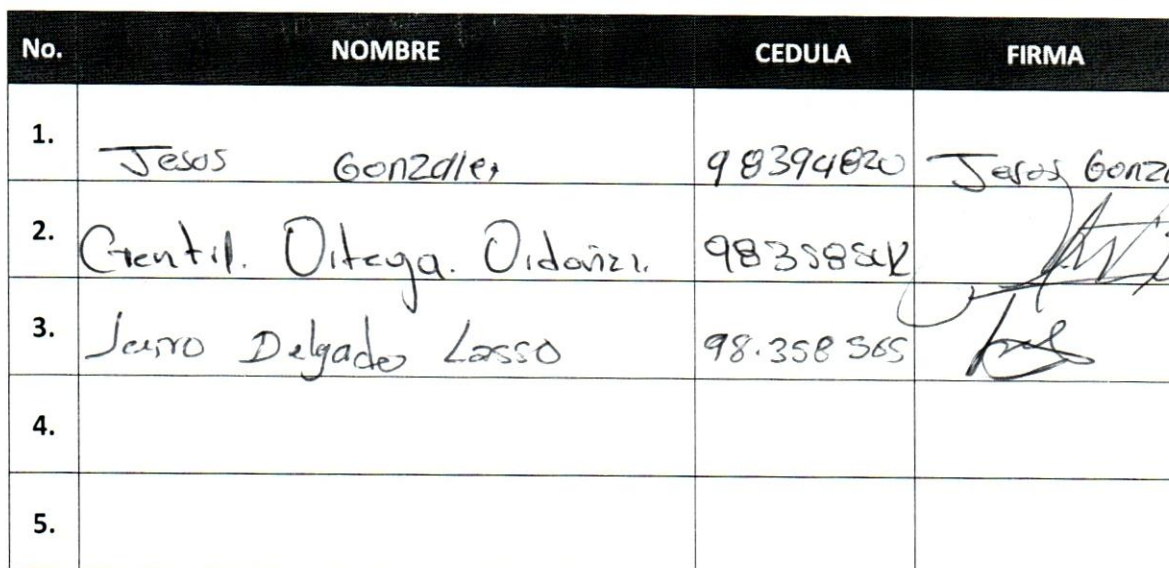 No. NOMBRE CEDULA FIRMA
1. Jesos Gonzalez 98394820 Jesos Gonza
2. Gentil. Ortega. Ordoñez.
3. Jairo Delgado Lasso 98.358 565
4.
5.